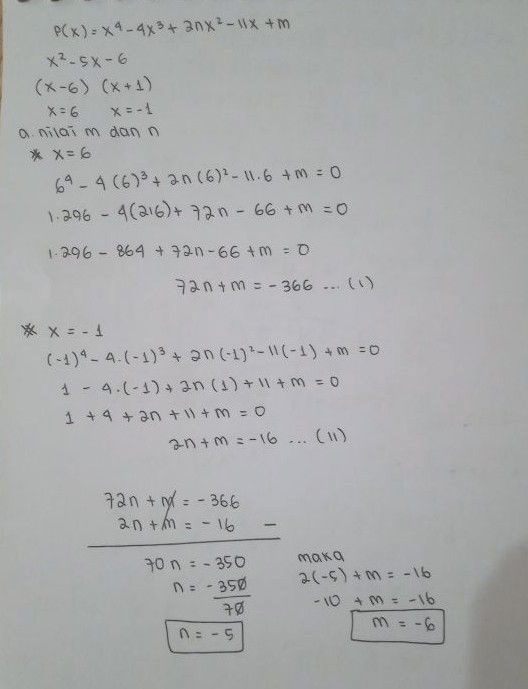 P(x) = x⁴ - 4x³ + 2nx² - 11x + m
x² - 5x - 6
(x-6) (x+1)
x = 6 x = -1
a. nilai m dan n
* x = 6
6⁴ - 4(6)³ + 2n(6)² - 11.6 + m = 0
1.296 - 4(216) + 72n - 66 + m = 0
1.296 - 864 + 72n - 66 + m = 0
72n + m = -366 ... (1)
* x = -1
(-1)⁴ - 4.(-1)³ + 2n(-1)² - 11(-1) + m = 0
1 - 4.(-1) + 2n(1) + 11 + m = 0
1 + 4 + 2n + 11 + m = 0
2n + m = -16 ... (11)
72n + m = -366
2n + m = -16 -
70n = -350
n = -350
70
n = -5
maka
2(-5) + m = -16
-10 + m = -16
m = -6